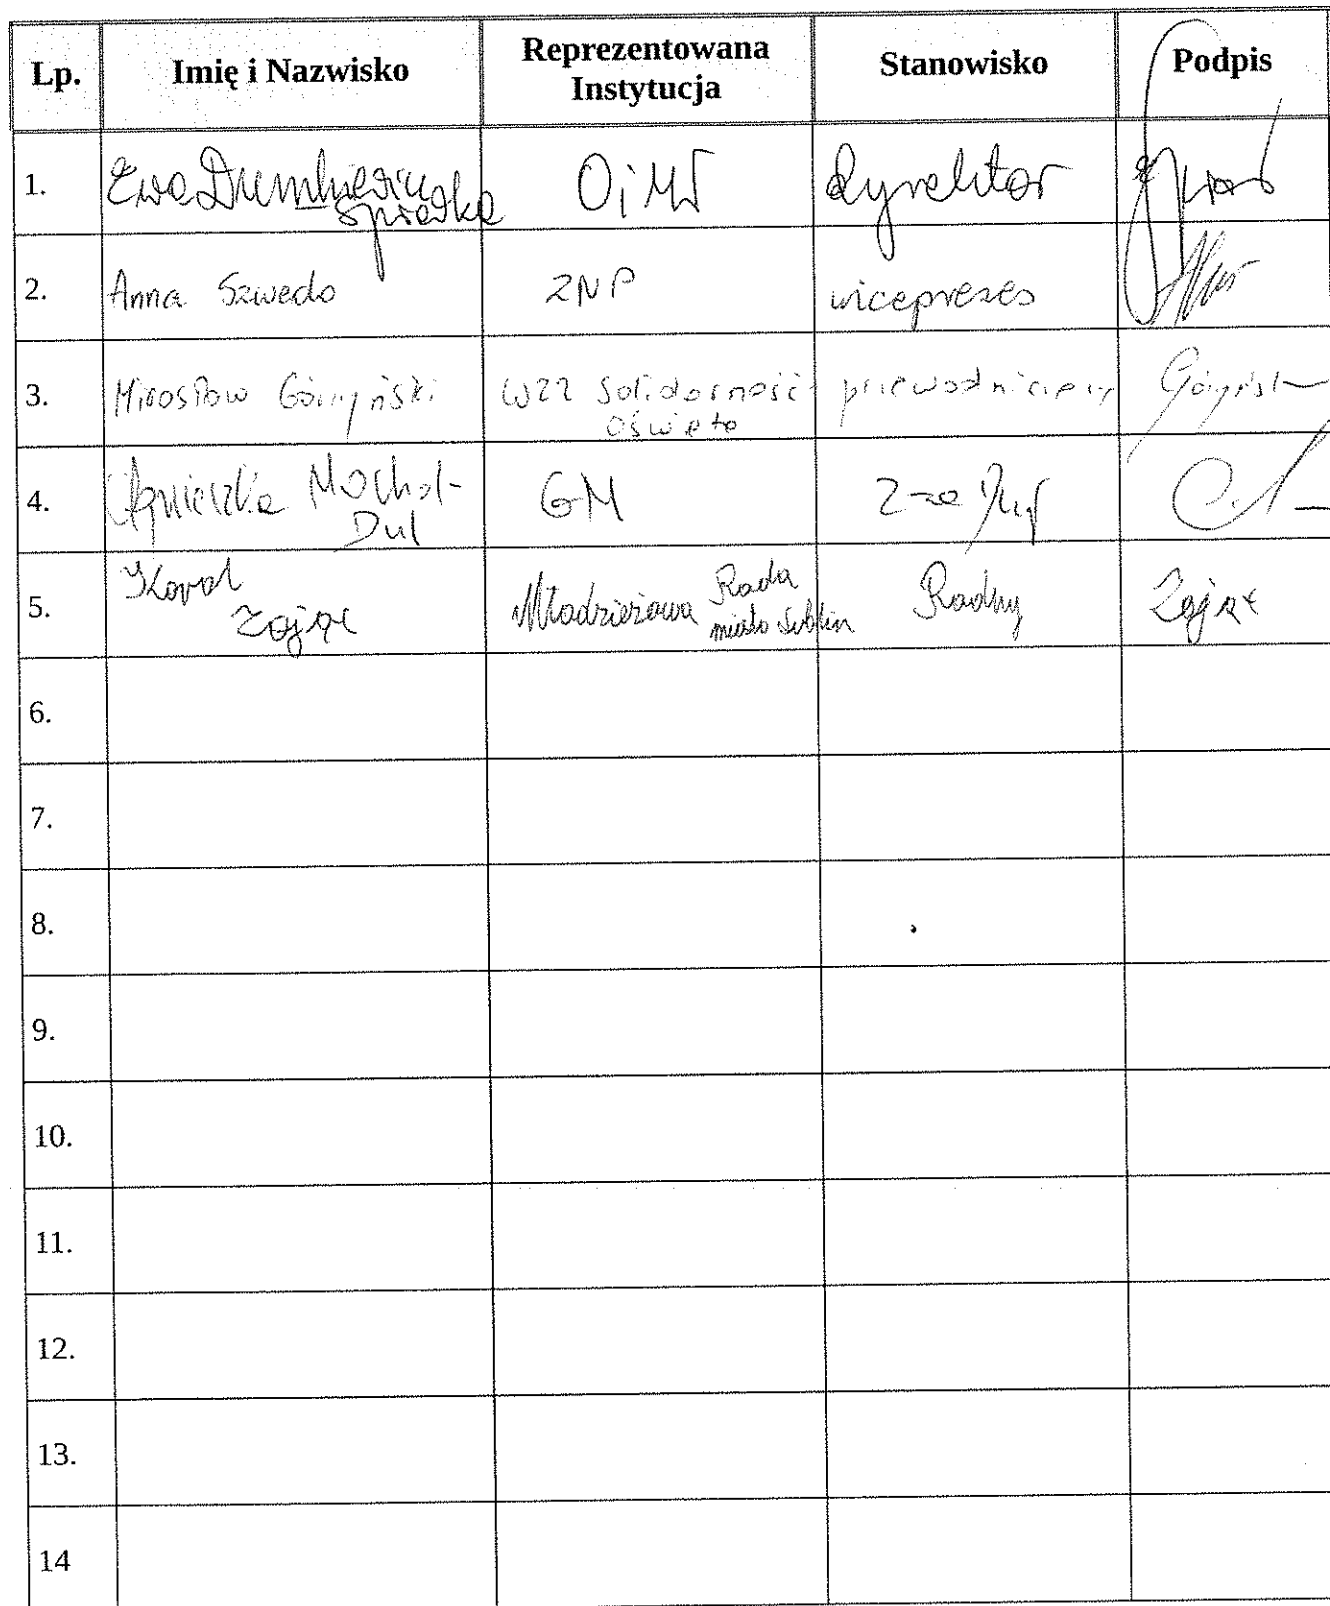 Lp. Imię i Nazwisko Reprezentowana Instytucja Stanowisko Podpis
1. Ewa Dumkiewicz Sprawka OiW dyrektor
2. Anna Szwedo ZNP wiceprezes
3. Mirosław Górczyński WZZ Solidarność Oświata przewodniczący
4. Agnieszka Mochol-Dul GM Z-ca
5. Karol Zając Młodzieżowa Rada miasta Lublin Radny Zając
6.
7.
8.
9.
10.
11.
12.
13.
14